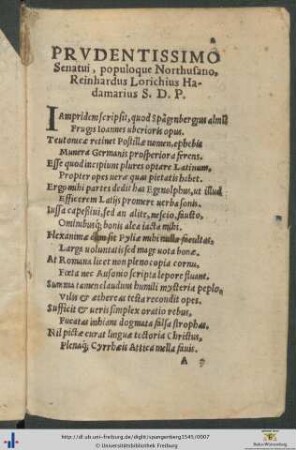 PRVDENTISSIMO
Senatui, populoque Northusano,
Reinhardus Lorichius Ha-
damarius S. D. P.
IAmpridem scripsit, quod Spāgenbergius almæ
Frugis Ioannes uberioris opus.
Teutonicæ retinet Postillæ nomen, ephebis
Munera Germanis prosperiora ferens.
Esse quod incipiunt plures optare Latinum,
Propter opes ueræ quas pietatis habet.
Ergo mihi partes dedit has Egnolphus, ut illud
Efficerem Latijs promere uerba sonis.
Iussa capessiui, sed an alite, nescio, fausto,
Ominibusq; bonis alea iacta mihi.
Flexanimæ Pyliæ mihi nulla facultas:
Larga uoluntatis sed magè uota bonæ.
At Romana licet non pleno copia cornu,
Fœta nec Ausonio scripta lepore fluant.
Summa tamen claudunt humili mysteria peplo,
Vilis & æthereas tecta recondit opes.
Sufficit & ueris simplex oratio rebus,
Fucatas inhiant dogmata falsa strophas.
Nil pictæ curat linguæ tectoria Christus,
Plenaq; Cyrrhæis Attica mella fauis.
A
http://dl.ub.uni-freiburg.de/diglit/spangenberg1545/0007
© Universitätsbibliothek Freiburg
Baden-Württemberg